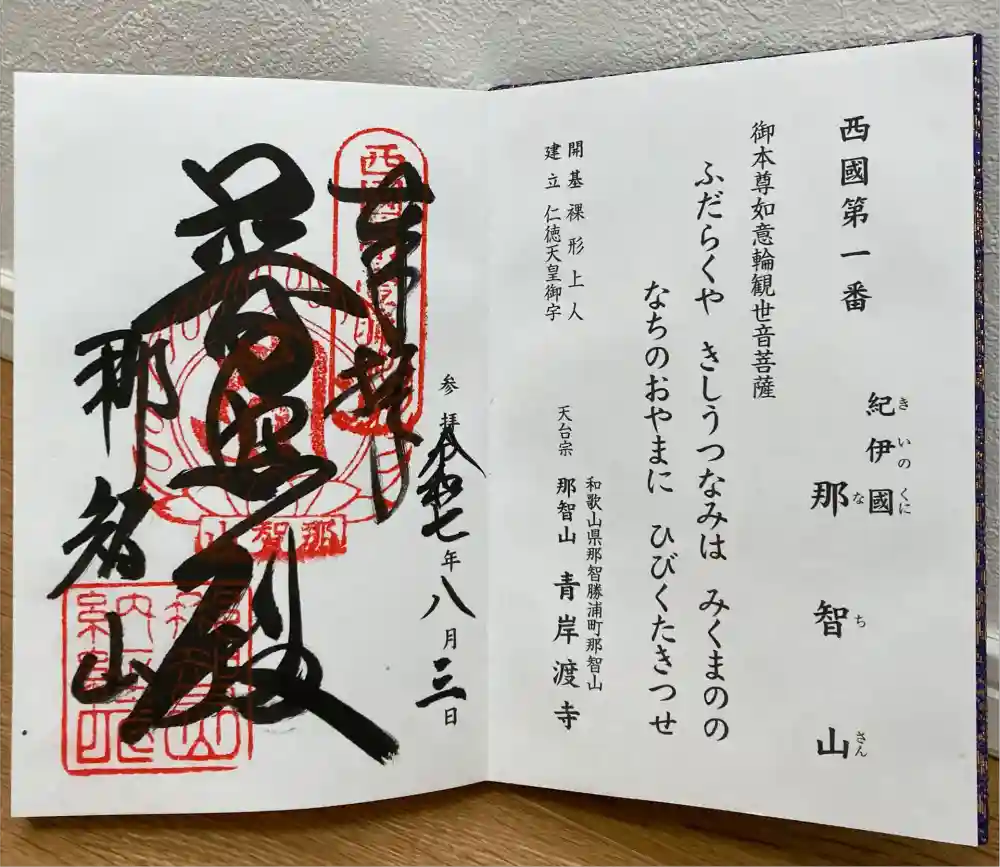 西國第一番
紀伊國
きいのくに
那智山
なちさん
御本尊如意輪観世音菩薩
ふだらくや きしうつなみは みくまのの
なちのおやまに ひびくたきつせ
開基 裸形上人
建立 仁徳天皇御宇
和歌山県那智勝浦町那智山
天台宗 那智山 青岸渡寺
参拝 令和七年八月三日
奉拝
普照殿
那智山
那智山